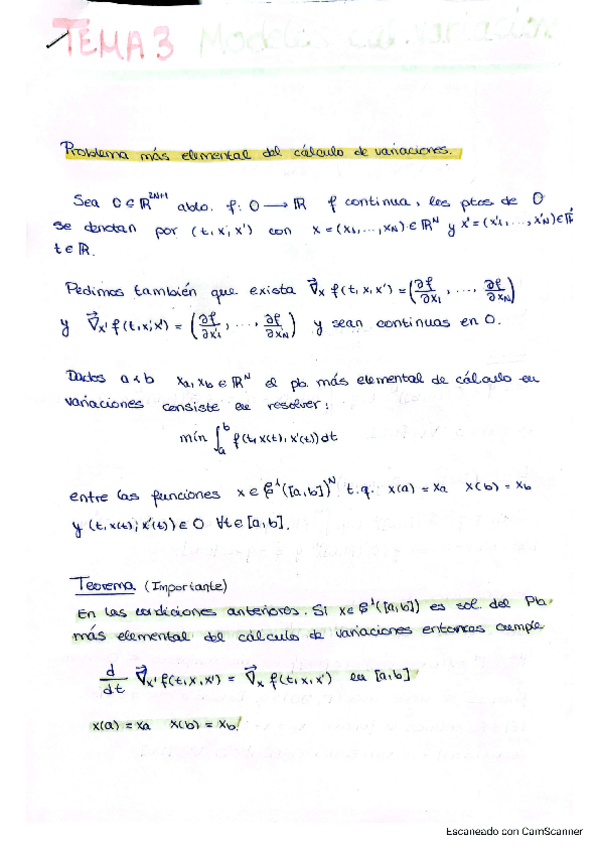 TEMA 3 Modelos cal. variacion
Problema más elemental del cálculo de variaciones.
Sea O ⊂ ℝ^{2N+1} abto. f: O → ℝ f continua, los ptos de O
se denotan por (t, x, x') con x = (x₁, ..., x_N) ∈ ℝ^N y x' = (x'₁, ..., x'_N) ∈ ℝ^N
t ∈ ℝ.
Pedimos también que exista ∇⃗_x f(t, x, x') = (∂f/∂x₁, ..., ∂f/∂x_N)
y ∇⃗_{x'} f(t, x, x') = (∂f/∂x'₁, ..., ∂f/∂x'_N) y sean continuas en O.
Dados a < b x_a, x_b ∈ ℝ^N el pb. más elemental de cálculo en
variaciones consiste en resolver:
min ∫_a^b f(t, x(t), x'(t)) dt
entre las funciones x ∈ C¹([a,b])^N t.q. x(a) = x_a x(b) = x_b
y (t, x(t), x'(t)) ∈ O ∀t ∈ [a,b].
Teorema (Importante)
En las condiciones anteriores. Si x ∈ C¹([a,b]) es sol. del Pb.
más elemental del cálculo de variaciones entonces cumple
d/dt ∇⃗_{x'} f(t, x, x') = ∇⃗_x f(t, x, x') en [a,b]
x(a) = x_a x(b) = x_b
Escaneado con CamScanner